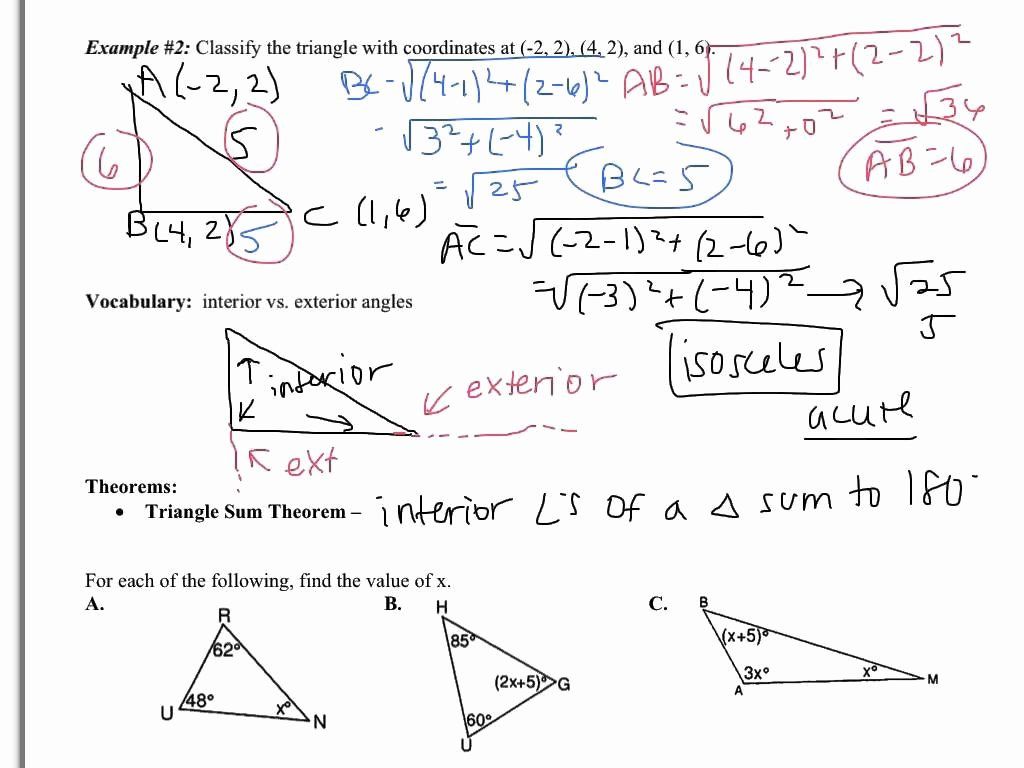 Example #2: Classify the triangle with coordinates at (-2, 2), (4, 2), and (1, 6).
A(-2, 2)
6
5
B(4, 2)
5
C (1, 6)
BC = √(4-1)²+(2-6)²
= √3²+(-4)²
= √25
BC=5
AB = √(4--2)²+(2-2)²
= √6²+0² = √36
AB=6
AC = √(-2-1)²+(2-6)²
= √(-3)²+(-4)² → √25
5
isosceles
acute
Vocabulary: interior vs. exterior angles
interior
exterior
ext
Theorems:
• Triangle Sum Theorem – interior ∠'s of a △ sum to 180°
For each of the following, find the value of x.
A.
R
62°
U
48°
x°
N
B.
H
85°
(2x+5)°
G
60°
U
C.
B
(x+5)°
3x°
A
x°
M